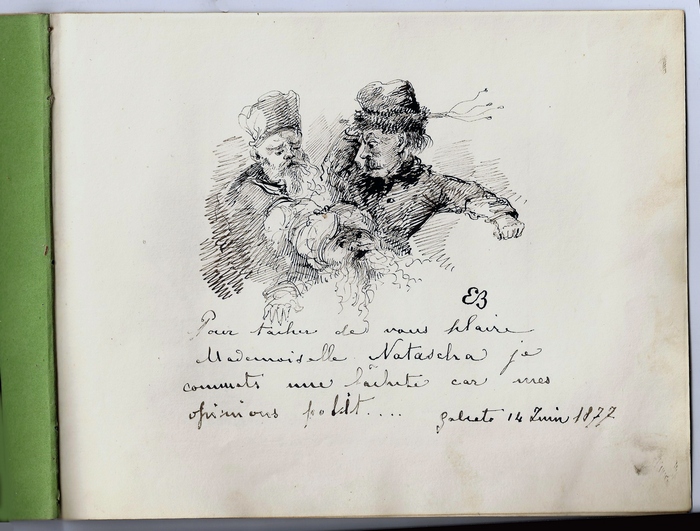 EB
Pour tacher de vous plaire
Mademoiselle Natascha je
commets une lâcheté car mes
opinions polit....
galeto 14 Juin 1877